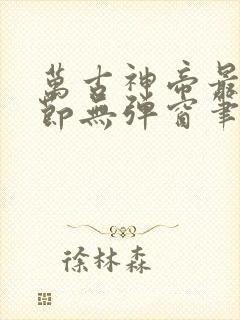 萬古神帝最
節無彈窗筆
徐林森